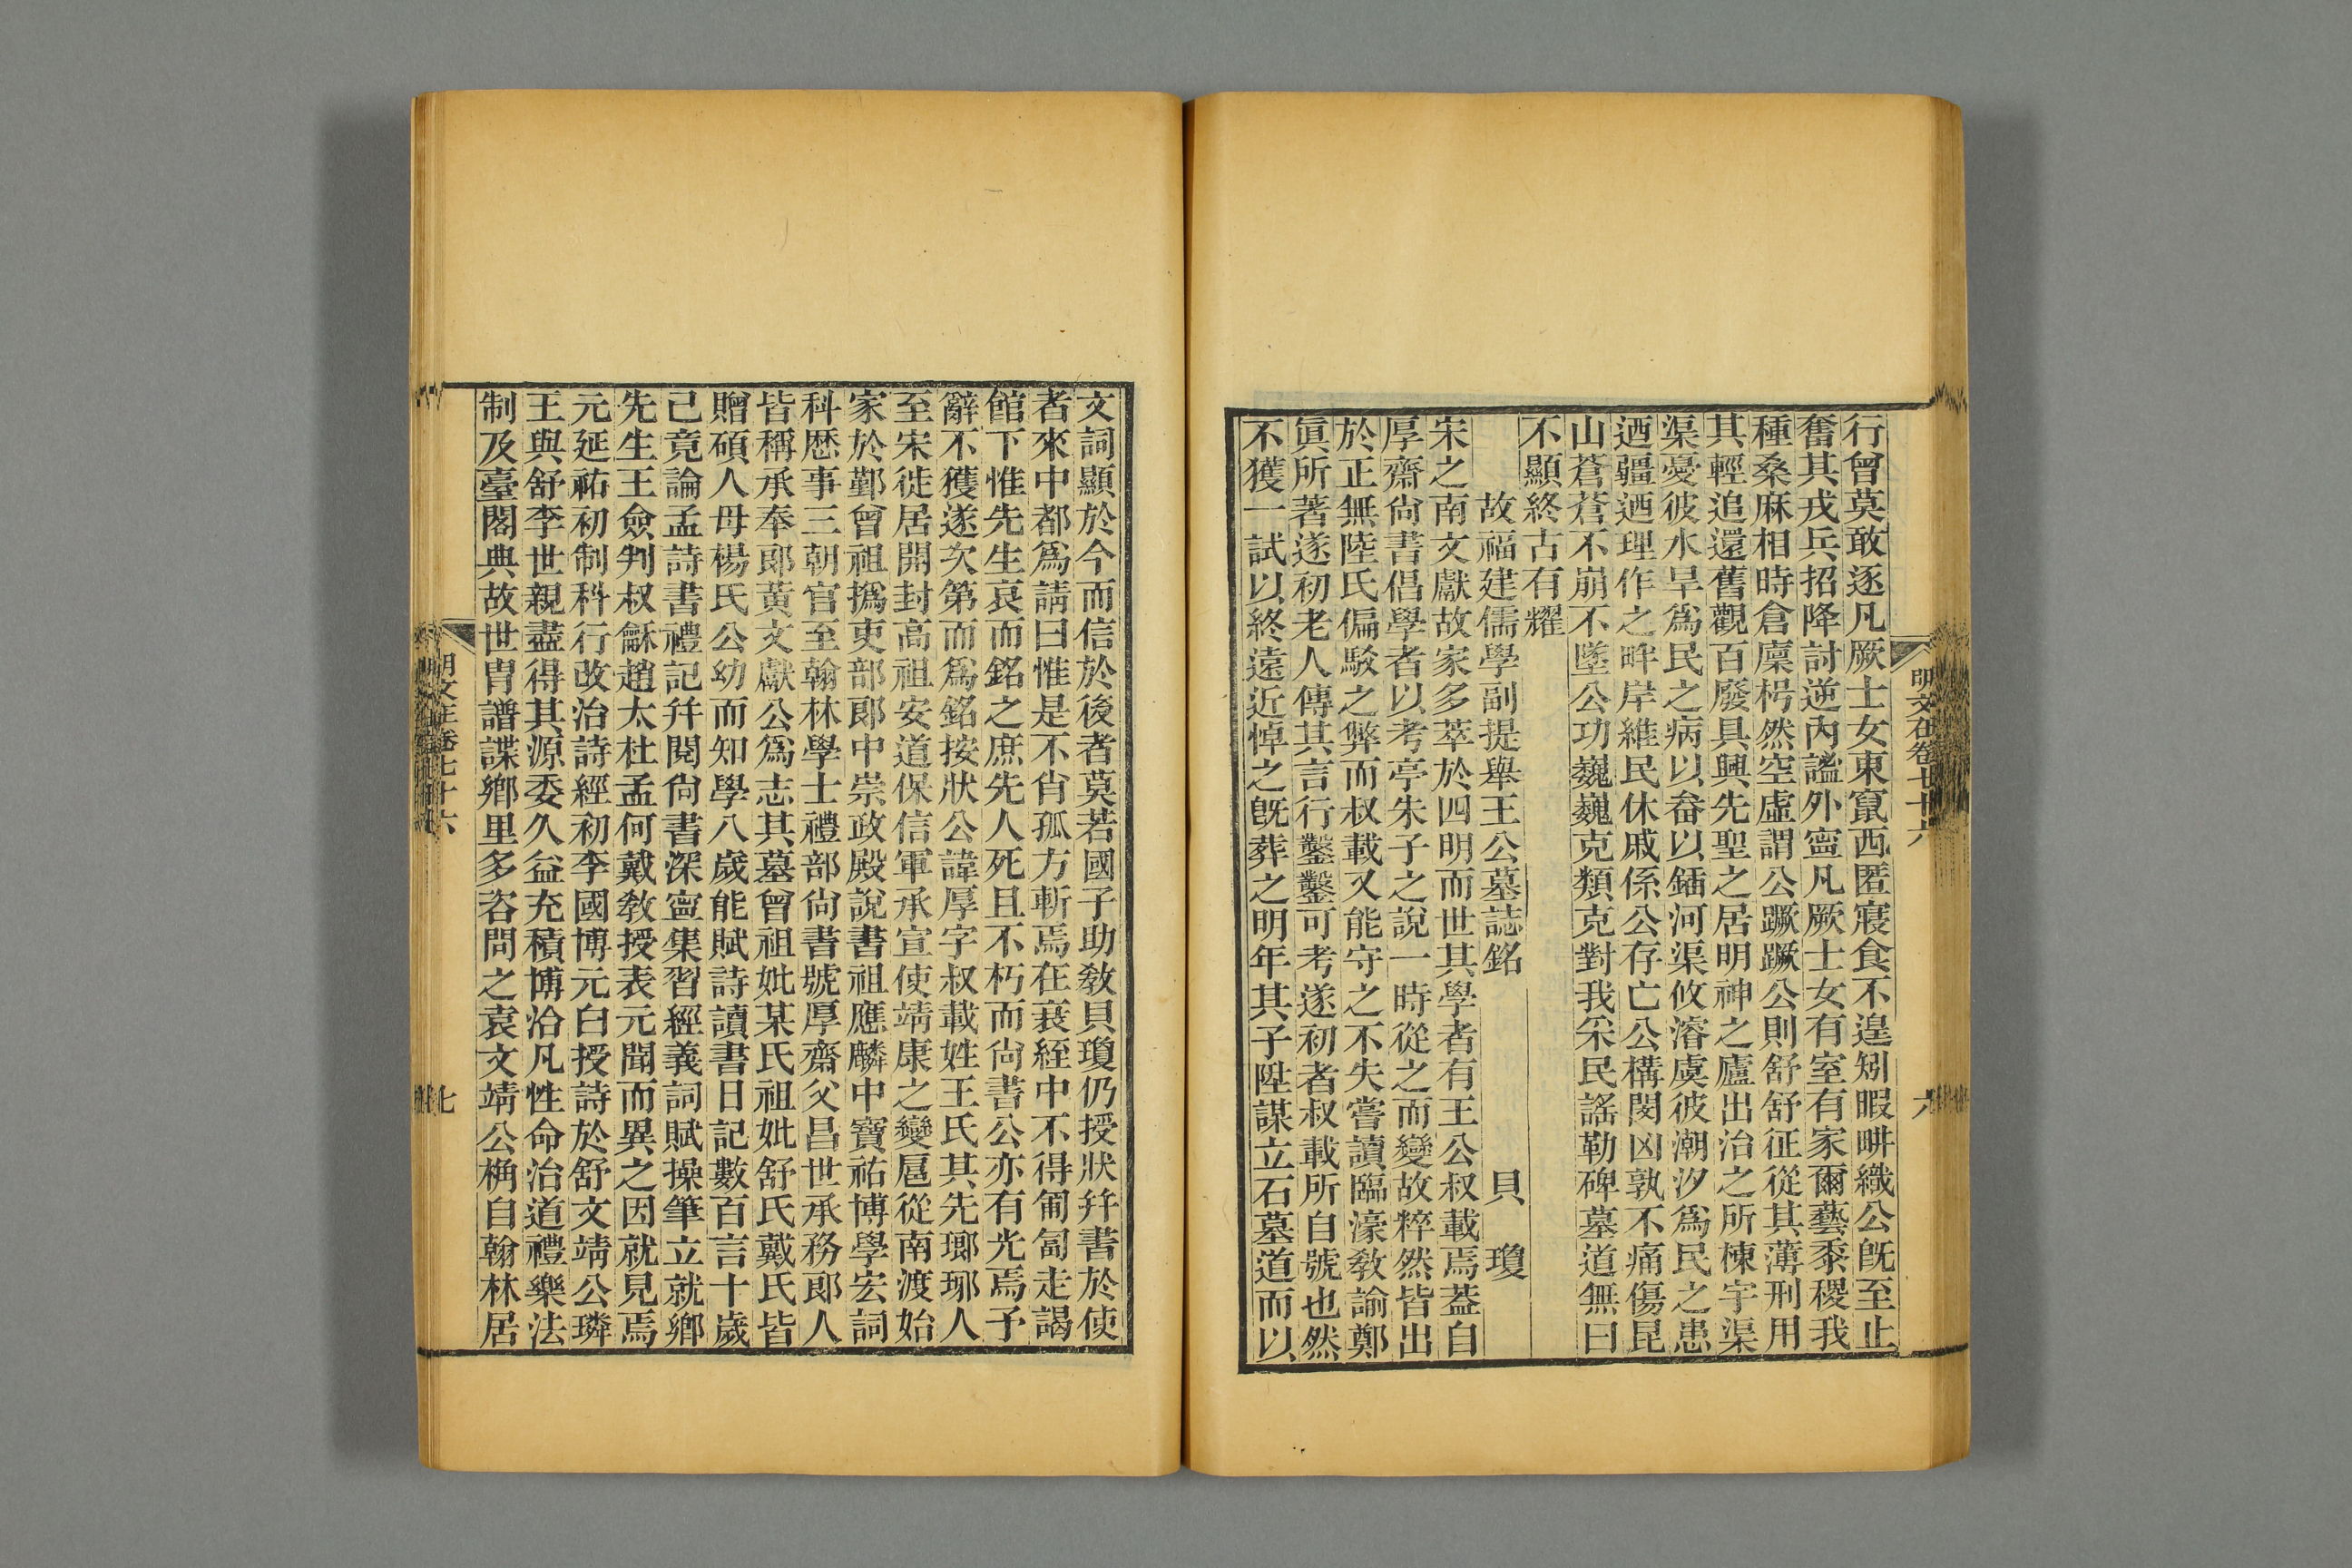 明文在卷七十六
六
行曾莫敢逐凡厥士女東竄西匿寢食不遑矧暇畊織公旣至止
奮其戎兵招降討逆內謐外寍凡厥士女有室有家爾藝黍稷我
種桑麻相時倉廩枵然空虛謂公蹶蹶公則舒舒征從其薄刑用
其輕追還舊觀百廢具興先聖之居明神之廬出治之所棟宇渠
渠憂彼水旱爲民之病以畚以鍤河渠攸濬虞彼潮汐爲民之患
迺疆迺理作之畔岸維民休戚係公存亡公構閔凶孰不痛傷昆
山蒼蒼不崩不墜公功巍巍克類克對我采民謠勒碑墓道無曰
不顯終古有耀
故福建儒學副提舉王公墓誌銘 貝 瓊
宋之南文獻故家多萃於四明而世其學者有王公叔載焉葢自
厚齋尙書倡學者以考亭朱子之說一時從之而變故粹然皆出
於正無陸氏偏駁之弊而叔載又能守之不失嘗讀臨濠敎諭鄭
眞所著遂初老人傳其言行鑿鑿可考遂初者叔載所自號也然
不獲一試以終遠近悼之旣葬之明年其子陞謀立石墓道而以
文詞顯於今而信於後者莫若國子助敎貝瓊仍授狀幷書於使
者來中都爲請曰惟是不肖孤方斬焉在衰絰中不得匍匐走謁
館下惟先生哀而銘之庶先人死且不朽而尙書公亦有光焉予
辭不獲遂次第而爲銘按狀公諱厚字叔載姓王氏其先瑯琊人
至宋徙居開封高祖安道保信軍承宣使靖康之變扈從南渡始
家於鄞曾祖撝吏部郎中崇政殿說書祖應麟中寶祐博學宏詞
科歷事三朝官至翰林學士禮部尙書號厚齋父昌世承務郎人
皆稱承奉郎黃文獻公爲志其墓曾祖妣某氏祖妣舒氏戴氏皆
贈碩人母楊氏公幼而知學八歲能賦詩讀書日記數百言十歲
己竟論孟詩書禮記幷閱尙書深寍集習經義詞賦操筆立就鄉
先生王僉判叔龢趙太杜孟何戴敎授表元聞而異之因就見焉
元延祐初制科行改治詩經初李國博元白授詩於舒文靖公璘
王與舒李世親盡得其源委久益充積博洽凡性命治道禮樂法
制及臺閣典故世胄譜諜鄉里多咨問之袁文靖公桷自翰林居
明文在卷七十六
七